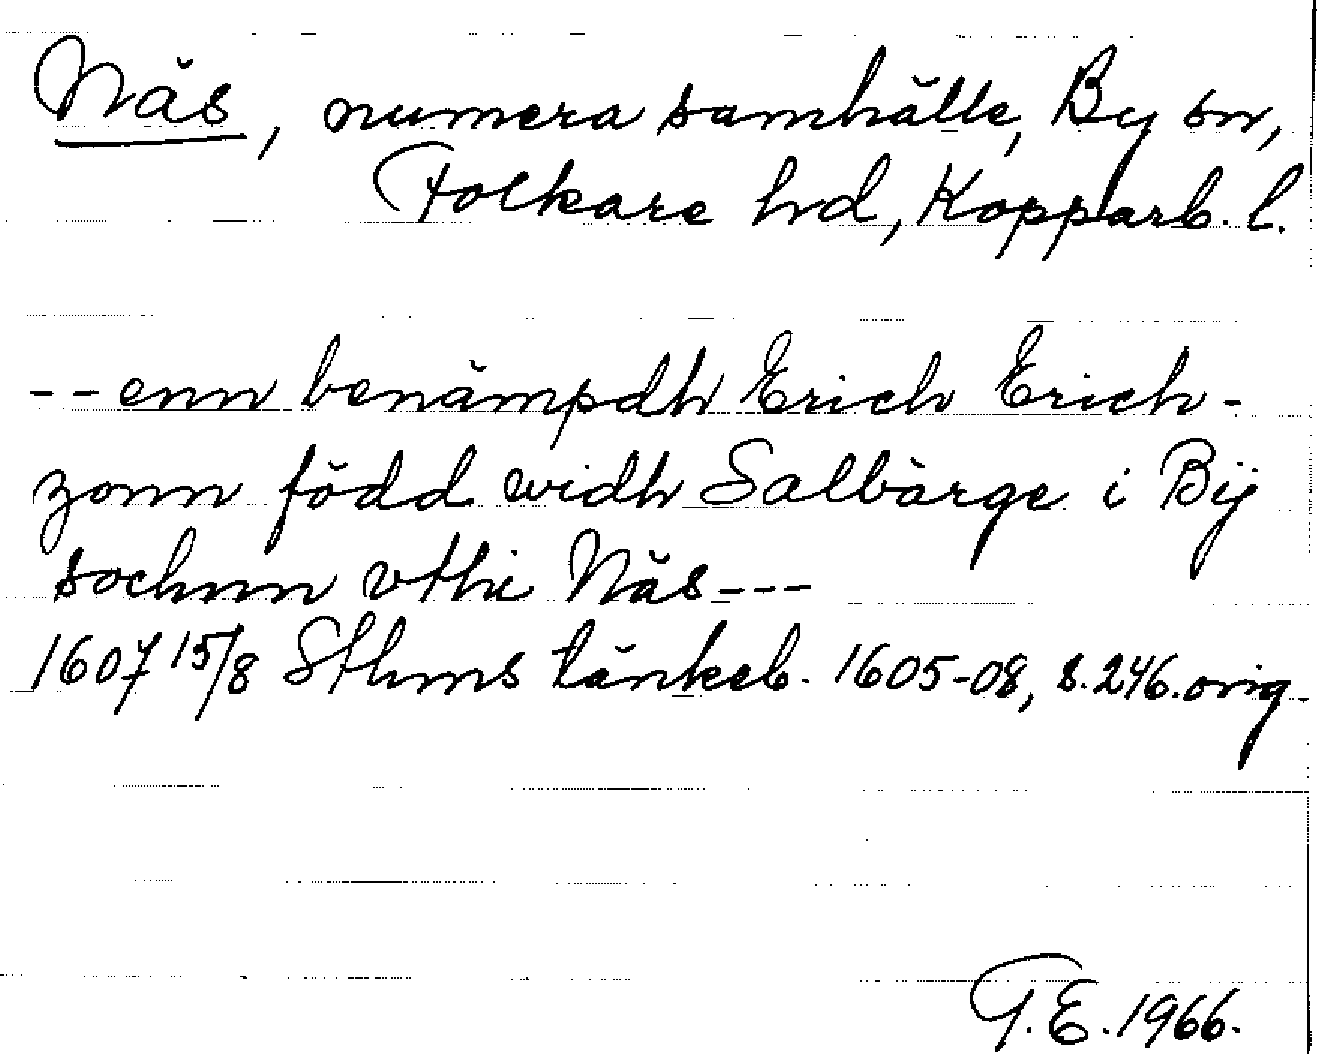 Näs, numera samhälle, By sn,
Folkare hd, Kopparb. l.
-- enn benämpdh Erich Erich-
zonn född widh Salbärge i Bÿ
sochnn vthi Näs ---
1607 15/8 Sthms tänkeb. 1605-08, s. 246. orig.
G.E. 1966.